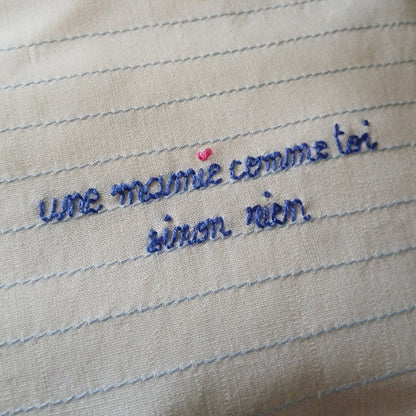 une mamie comme toi
sinon rien